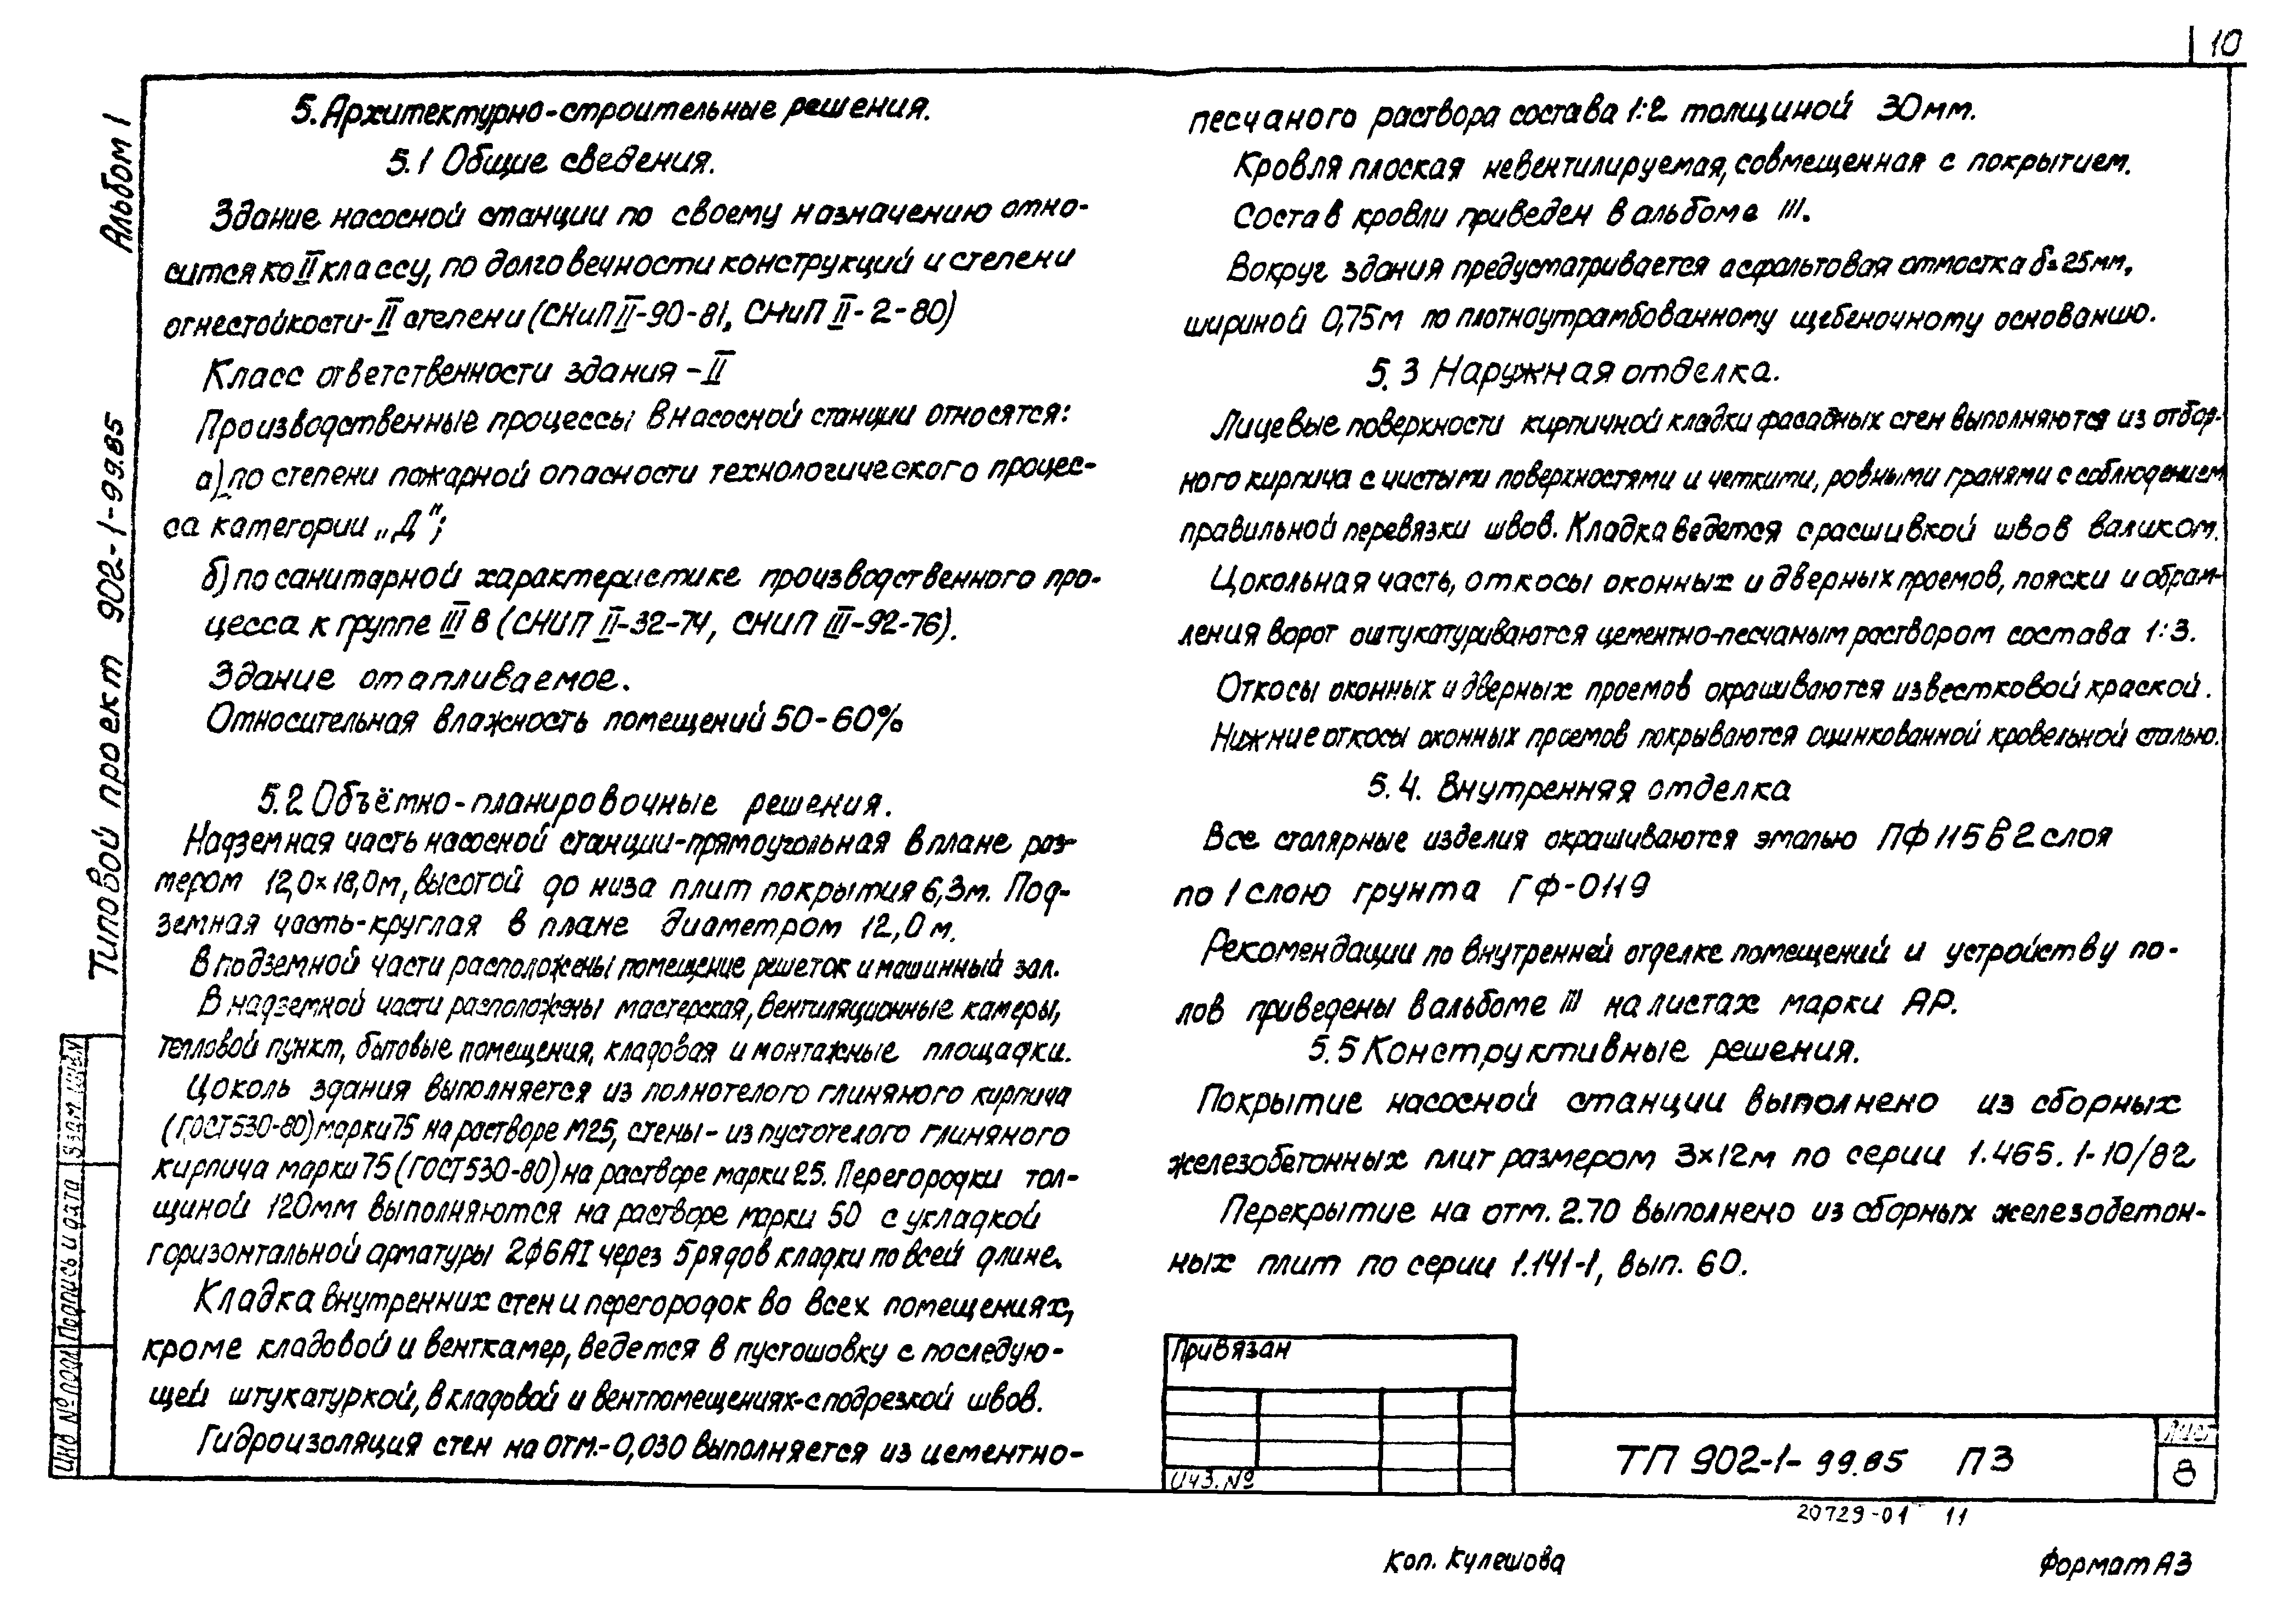 10
Альбом I
Типовой проект 902-1-99.85
5. Архитектурно-строительные решения.
5.1 Общие сведения.
Здание насосной станции по своему назначению отно-
сится ко II классу, по долговечности конструкций и степени
огнестойкости-II степени (СНиП II-90-81, СНиП II-2-80)
Класс ответственности здания -II
Производственные процессы в насосной станции относятся:
а) по степени пожарной опасности технологического процес-
са категории „Д";
б) по санитарной характеристике производственного про-
цесса к группе III в (СНиП II-32-74, СНиП III-92-76).
Здание отапливаемое.
Относительная влажность помещений 50-60%
5.2 Объёмно-планировочные решения.
Надземная часть насосной станции-прямоугольная в плане раз-
мером 12,0×18,0м, высотой до низа плит покрытия 6,3м. Под-
земная часть-круглая в плане диаметром 12,0 м.
В подземной части расположены помещение решеток и машинный зал.
В надземной части расположены мастерская, вентиляционные камеры,
тепловой пункт, бытовые помещения, кладовая и монтажные площадки.
Цоколь здания выполняется из полнотелого глиняного кирпича
(ГОСТ 530-80) марки 75 на растворе М25, стены- из пустотелого глиняного
кирпича марки 75 (ГОСТ 530-80) на растворе марки 25. Перегородки тол-
щиной 120мм выполняются на растворе марки 50 с укладкой
горизонтальной арматуры 2ф6АI через 5 рядов кладки по всей длине.
Кладка внутренних стен и перегородок во всех помещениях,
кроме кладовой и венткамер, ведется в пустошовку с последую-
щей штукатуркой, в кладовой и вентпомещениях-с подрезкой швов.
Гидроизоляция стен на отм.-0,030 выполняется из цементно-
песчаного раствора состава 1:2 толщиной 30мм.
Кровля плоская невентилируемая, совмещенная с покрытием.
Состав кровли приведен в альбоме III.
Вокруг здания предусматривается асфальтовая отмостка δ=25мм,
шириной 0,75м по плотноутрамбованному щебеночному основанию.
5.3 Наружная отделка.
Лицевые поверхности кирпичной кладки фасадных стен выполняются из отбор-
ного кирпича с чистыми поверхностями и четкими, ровными гранями с соблюдением
правильной перевязки швов. Кладка ведется с расшивкой швов валиком.
Цокольная часть, откосы оконных и дверных проемов, пояски и обрам-
ления ворот оштукатуриваются цементно-песчаным раствором состава 1:3.
Откосы оконных и дверных проемов окрашиваются известковой краской.
Нижние откосы оконных проемов покрываются оцинкованной кровельной сталью.
5.4. Внутренняя отделка
Все столярные изделия окрашиваются эмалью ПФ 115 в 2 слоя
по 1 слою грунта ГФ-0119
Рекомендации по внутренней отделке помещений и устройству по-
лов приведены в альбоме III на листах марки АР.
5.5 Конструктивные решения.
Покрытие насосной станции выполнено из сборных
железобетонных плит размером 3×12м по серии 1.465.1-10/82
Перекрытие на отм. 2.70 выполнено из сборных железобетон-
ных плит по серии 1.141-1, вып. 60.
Взам инв.№
Подпись и дата
Инв № подл
Привязан
Инв. №
ТП 902-1-99.85 ПЗ
Лист
8
20729-01 11
Коп. Кулешова
Формат А3